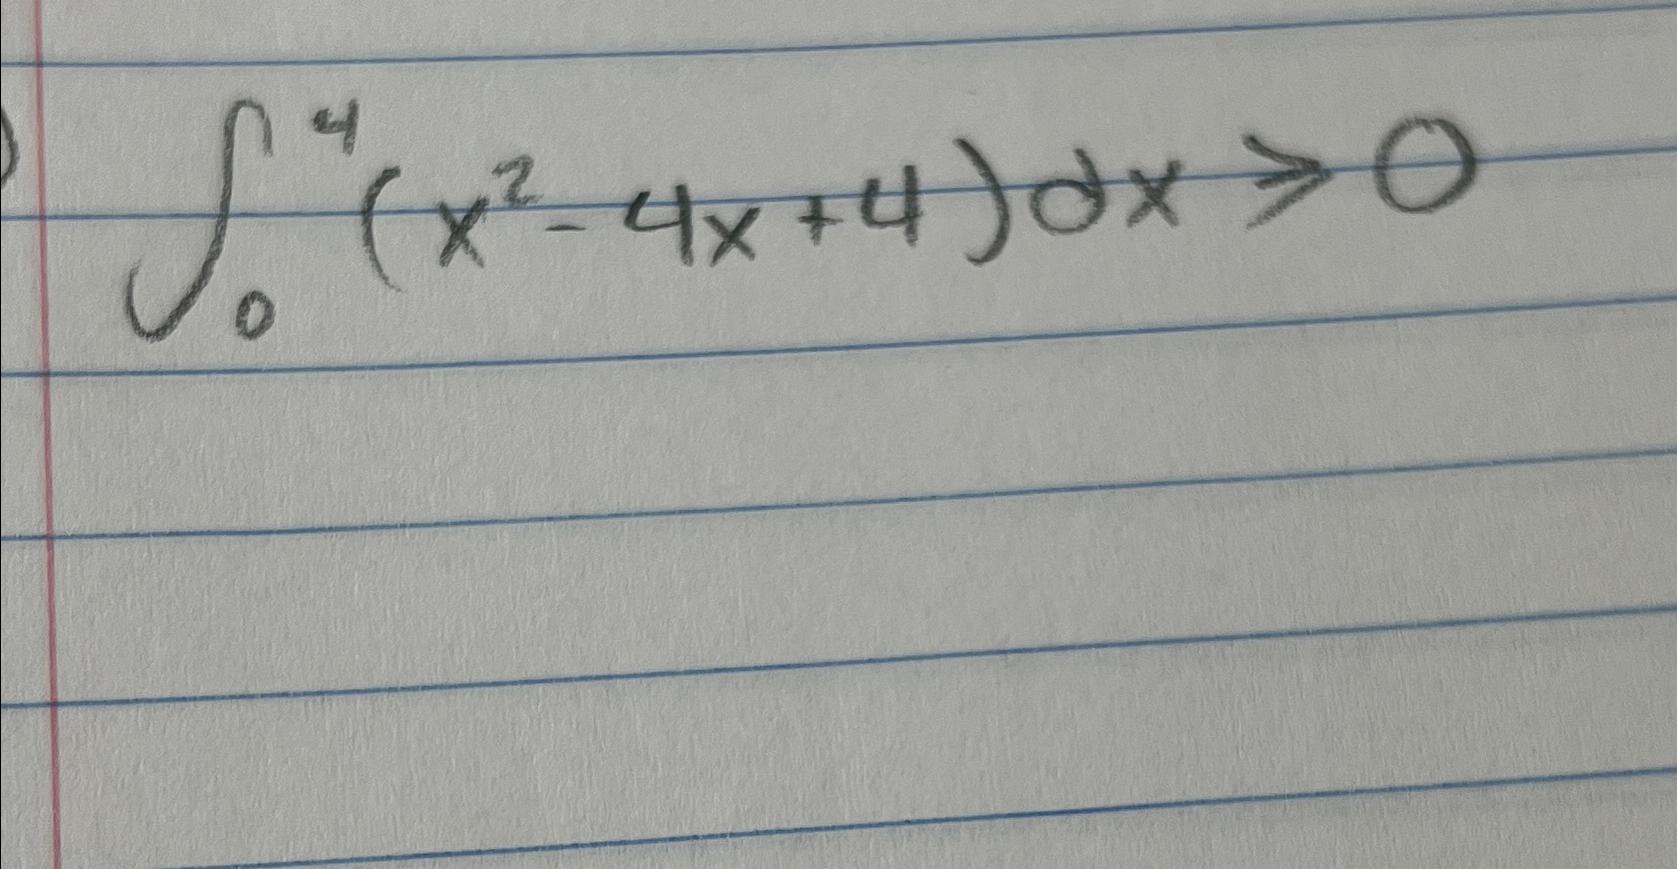 ) ∫₀⁴ (x² - 4x + 4) dx ≥ 0